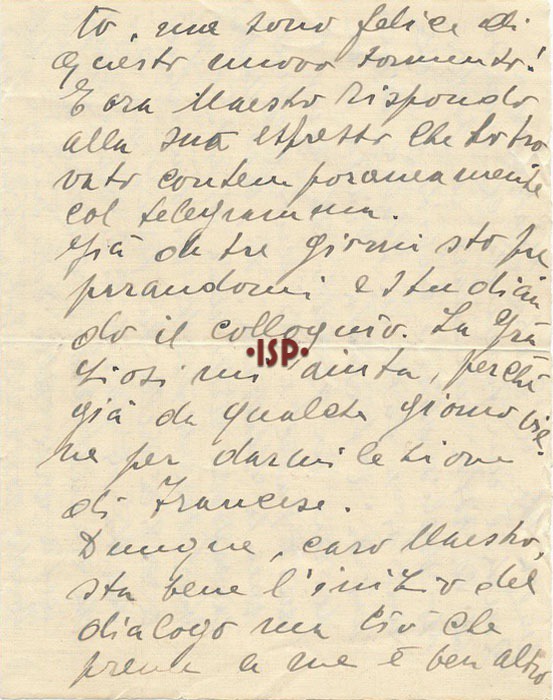 to, ma sono felice di
questo nuovo tormento!
E ora Maestro rispondo
alla sua espresso che ho tro
vato contemporaneamente
col telegramma.
Già da tre giorni sto pre
parandomi e studian
do il colloquio. La Gra
·ISP·
ziosi mi aiuta, perchè
già da qualche giorno vie-
ne per darmi lezione
di Francese.
Dunque, caro Maestro,
sta bene l'inizio del
dialogo ma ciò che
preme a me è ben altro